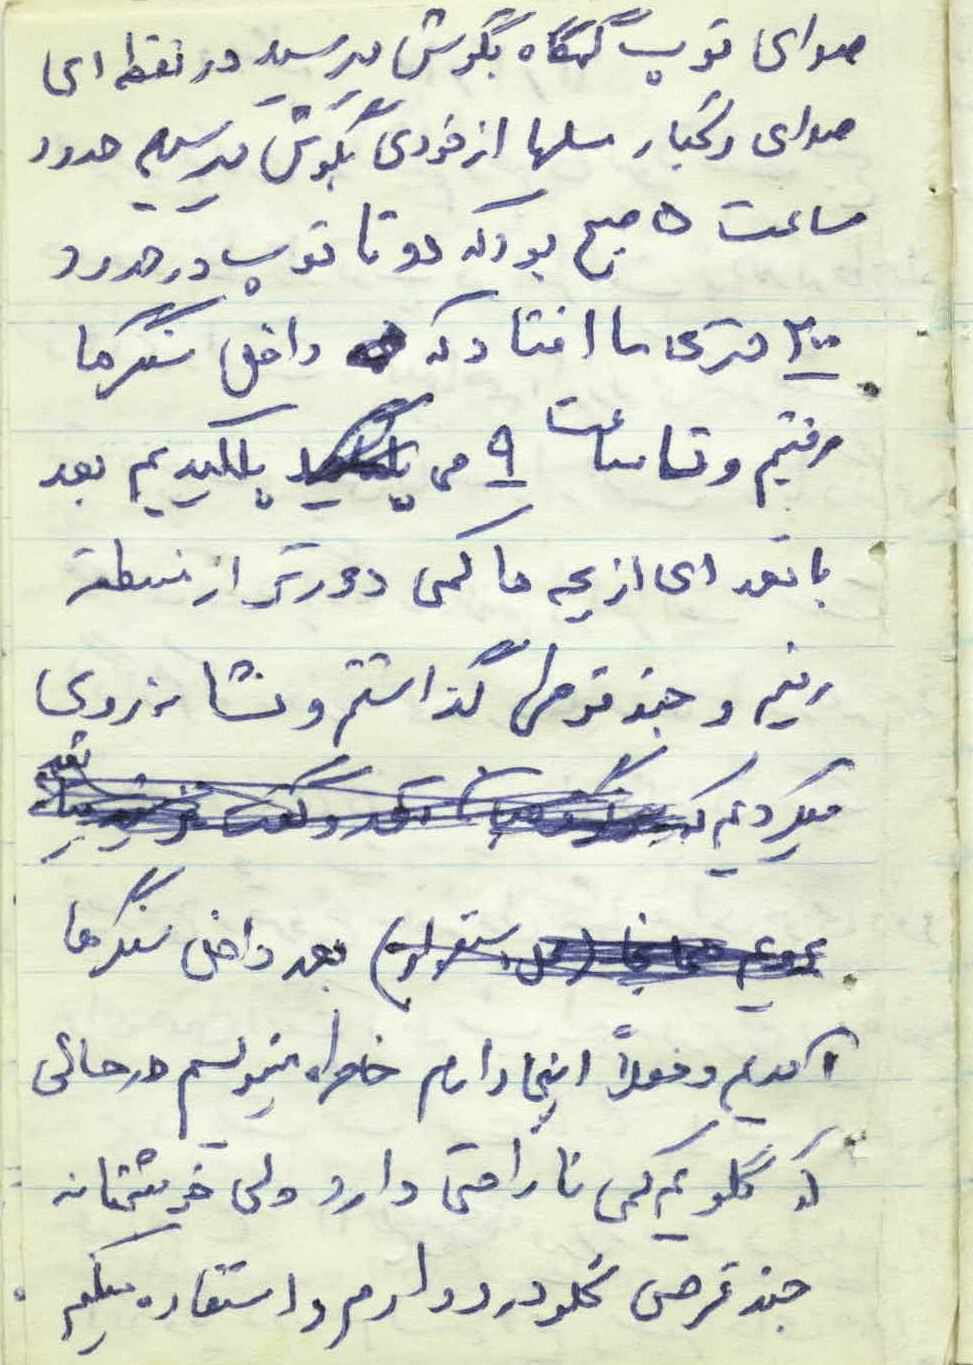 صدای توپ گهگاه بگوش میرسید در نقطه ای
صدای رگبار مسلسلها از خودی بگوش میرسید حدود
ساعت ۵ صبح بود که دو تا توپ در حدود
۲۰۰ متری ما افتاد که داخل سنگرها
رفتیم و تا ساعت ۹ می پلکیدیم بعد
با تعدادی از بچه ها کمی دورتر از منطقه
رفتیم و چند قوطی گذاشتیم و نشانه روی
میکردیم که
بعد داخل سنگرها
آمدیم و فعلاً اینجا دارم خاطره مینویسم در حالی
که گلویم کمی ناراحتی دارد ولی خوشبختانه
چند قرص گلودرد دارم و استفاده میکنم